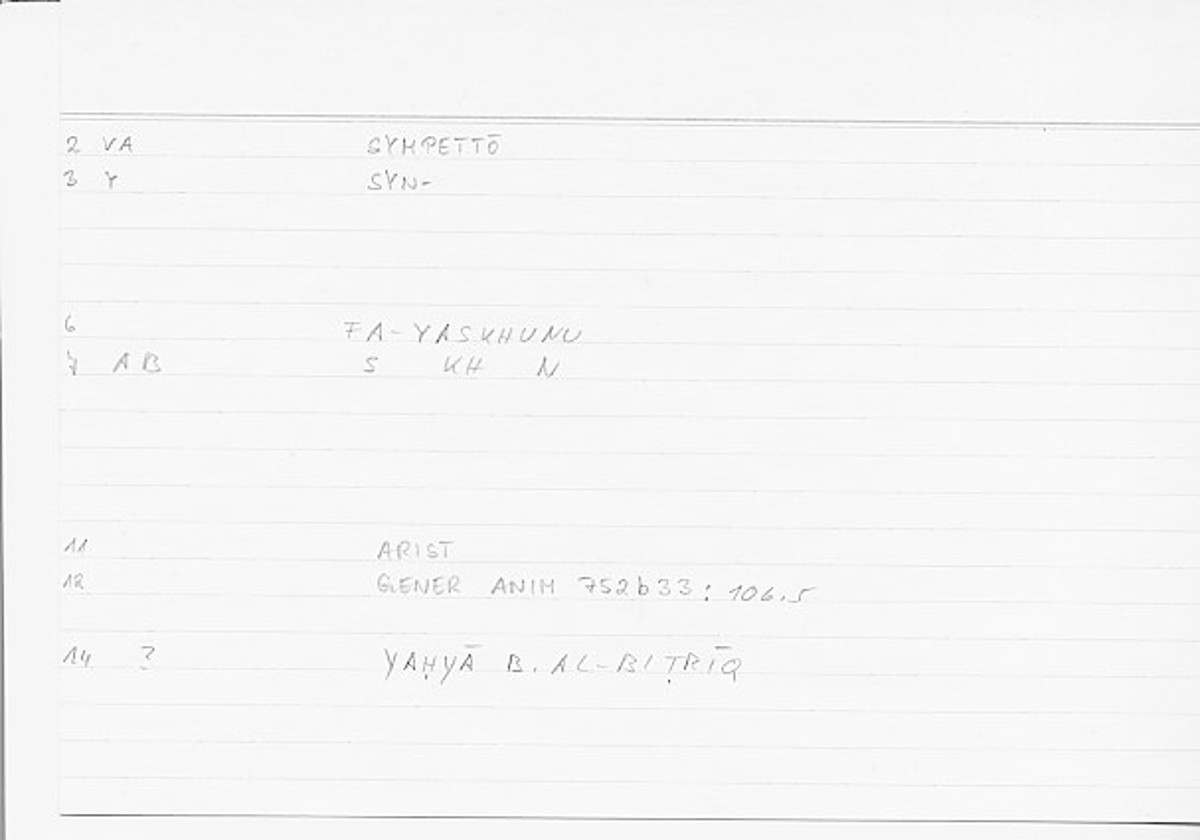 2 VA SYMPETTŌ
3 Y SYN-
6 FA-YASKHUNU
7 AB S KH N
11 ARIST
12 GENER ANIM 752b33: 106.5
14 ? YAḤYĀ B. AL-BIṬRĪQ